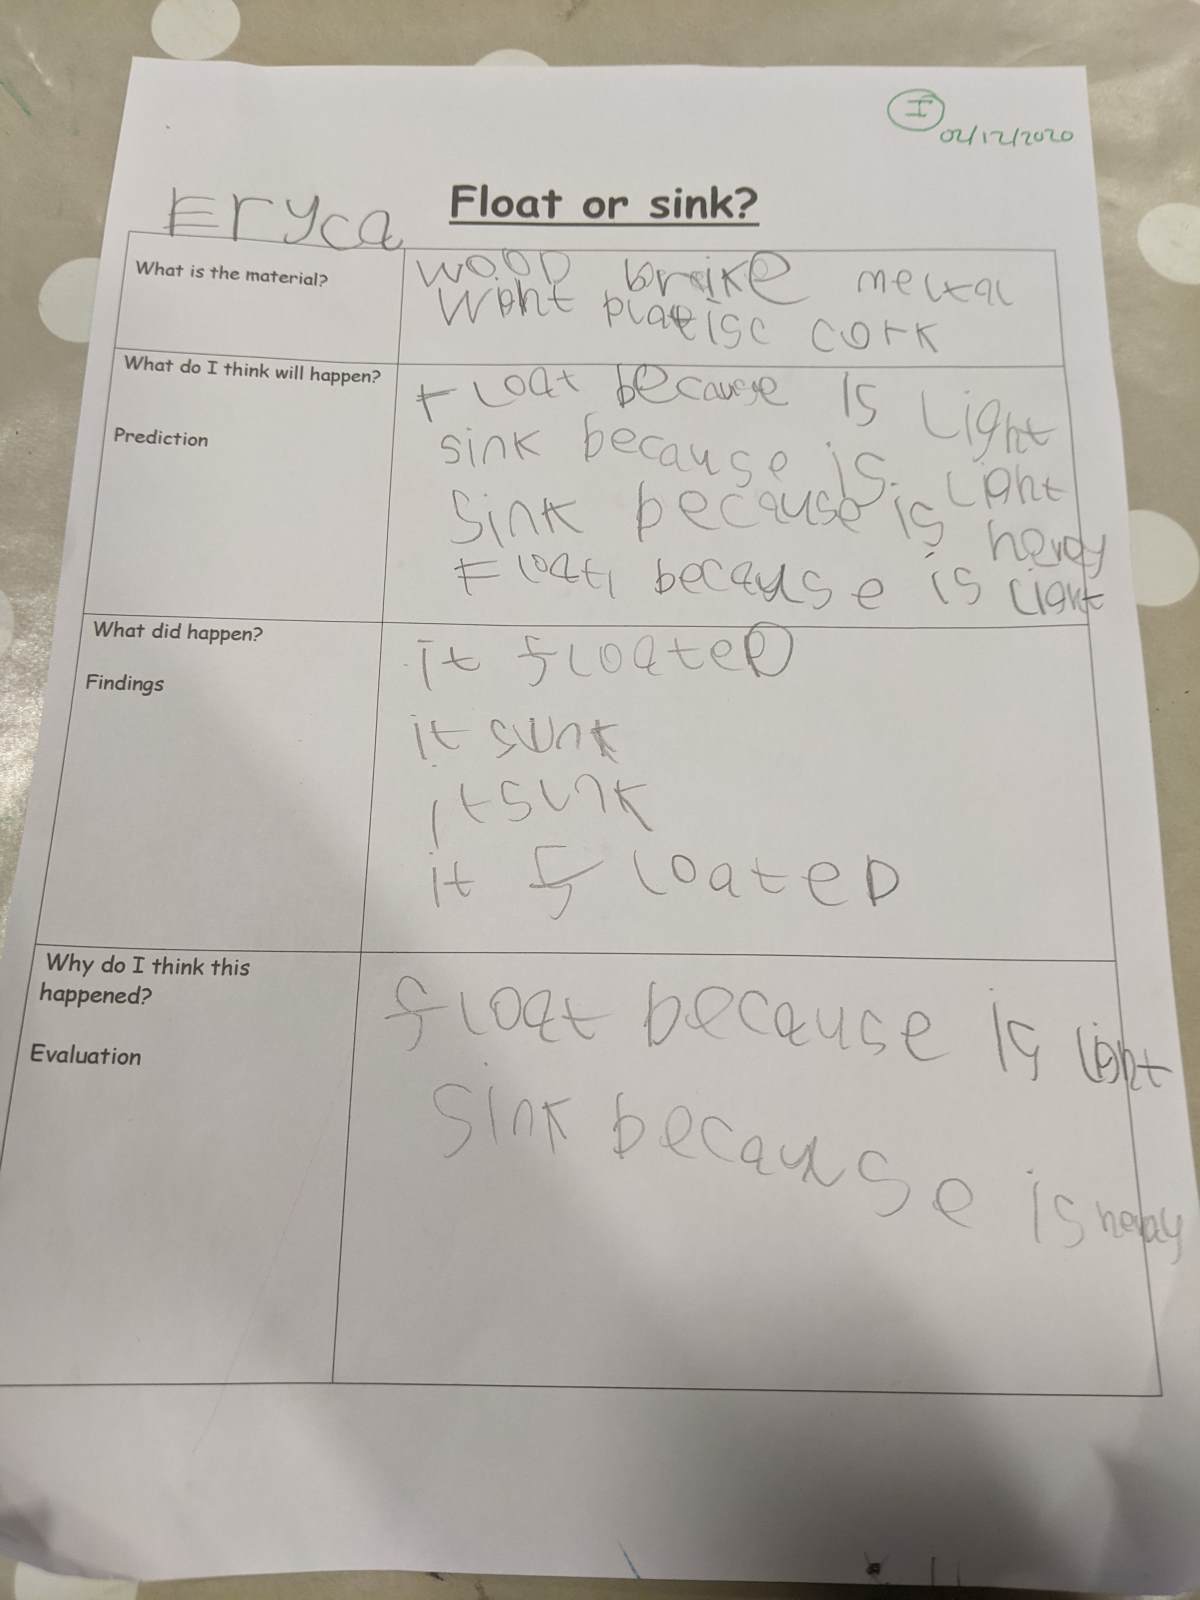 I
02/12/2020
Eryca
Float or sink?
What is the material?
WOOD brike meltal
Wight platisc cork
What do I think will happen?
Prediction
FLoat because is Light
sink because is Light
Sink because is hevay
FLoat because is Light
What did happen?
Findings
it floateD
it sunk
it sunk
it floateD
Why do I think this
happened?
Evaluation
float because is Light
Sink because is hevay